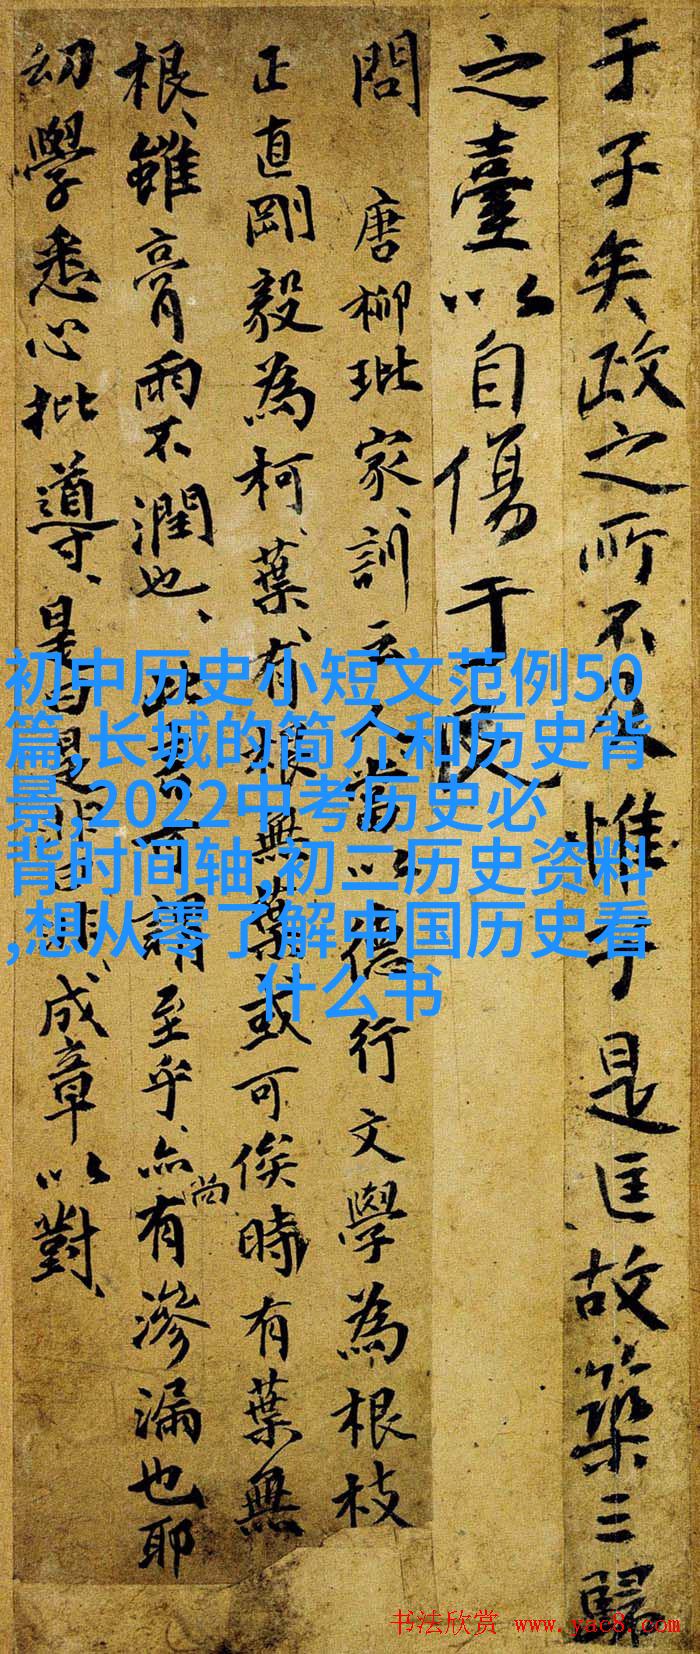 于子矣政之所不及惟子是匡故築三歸
之臺以自傷于民
問 唐柳玭家訓云人當以德行文學為根枝
正直剛毅為柯葉有根無葉或可俟時有葉無
根雖膏雨不潤也此者可謂至乎亦有滲漏也耶
尚
幼學悉心批導是曰是非曰非成章以對
初中历史小短文范例50
篇,长城的简介和历史背
景,2022中考历史必
背时间轴,初二历史资料
,想从零了解中国历史看
什么书
书法欣赏 www.yac8.com